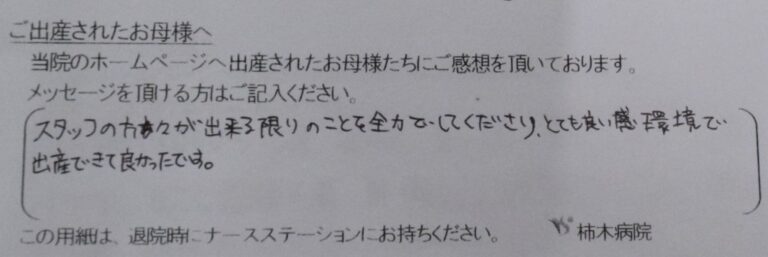 ご出産されたお母様へ
当院のホームページへ出産されたお母様たちにご感想を頂いております。
メッセージを頂ける方はご記入ください。
スタッフの方々が出来る限りのことを全力でしてくださり、とても良い環境で
出産できて良かったです。
この用紙は、退院時にナースステーションにお持ちください。 柿木病院